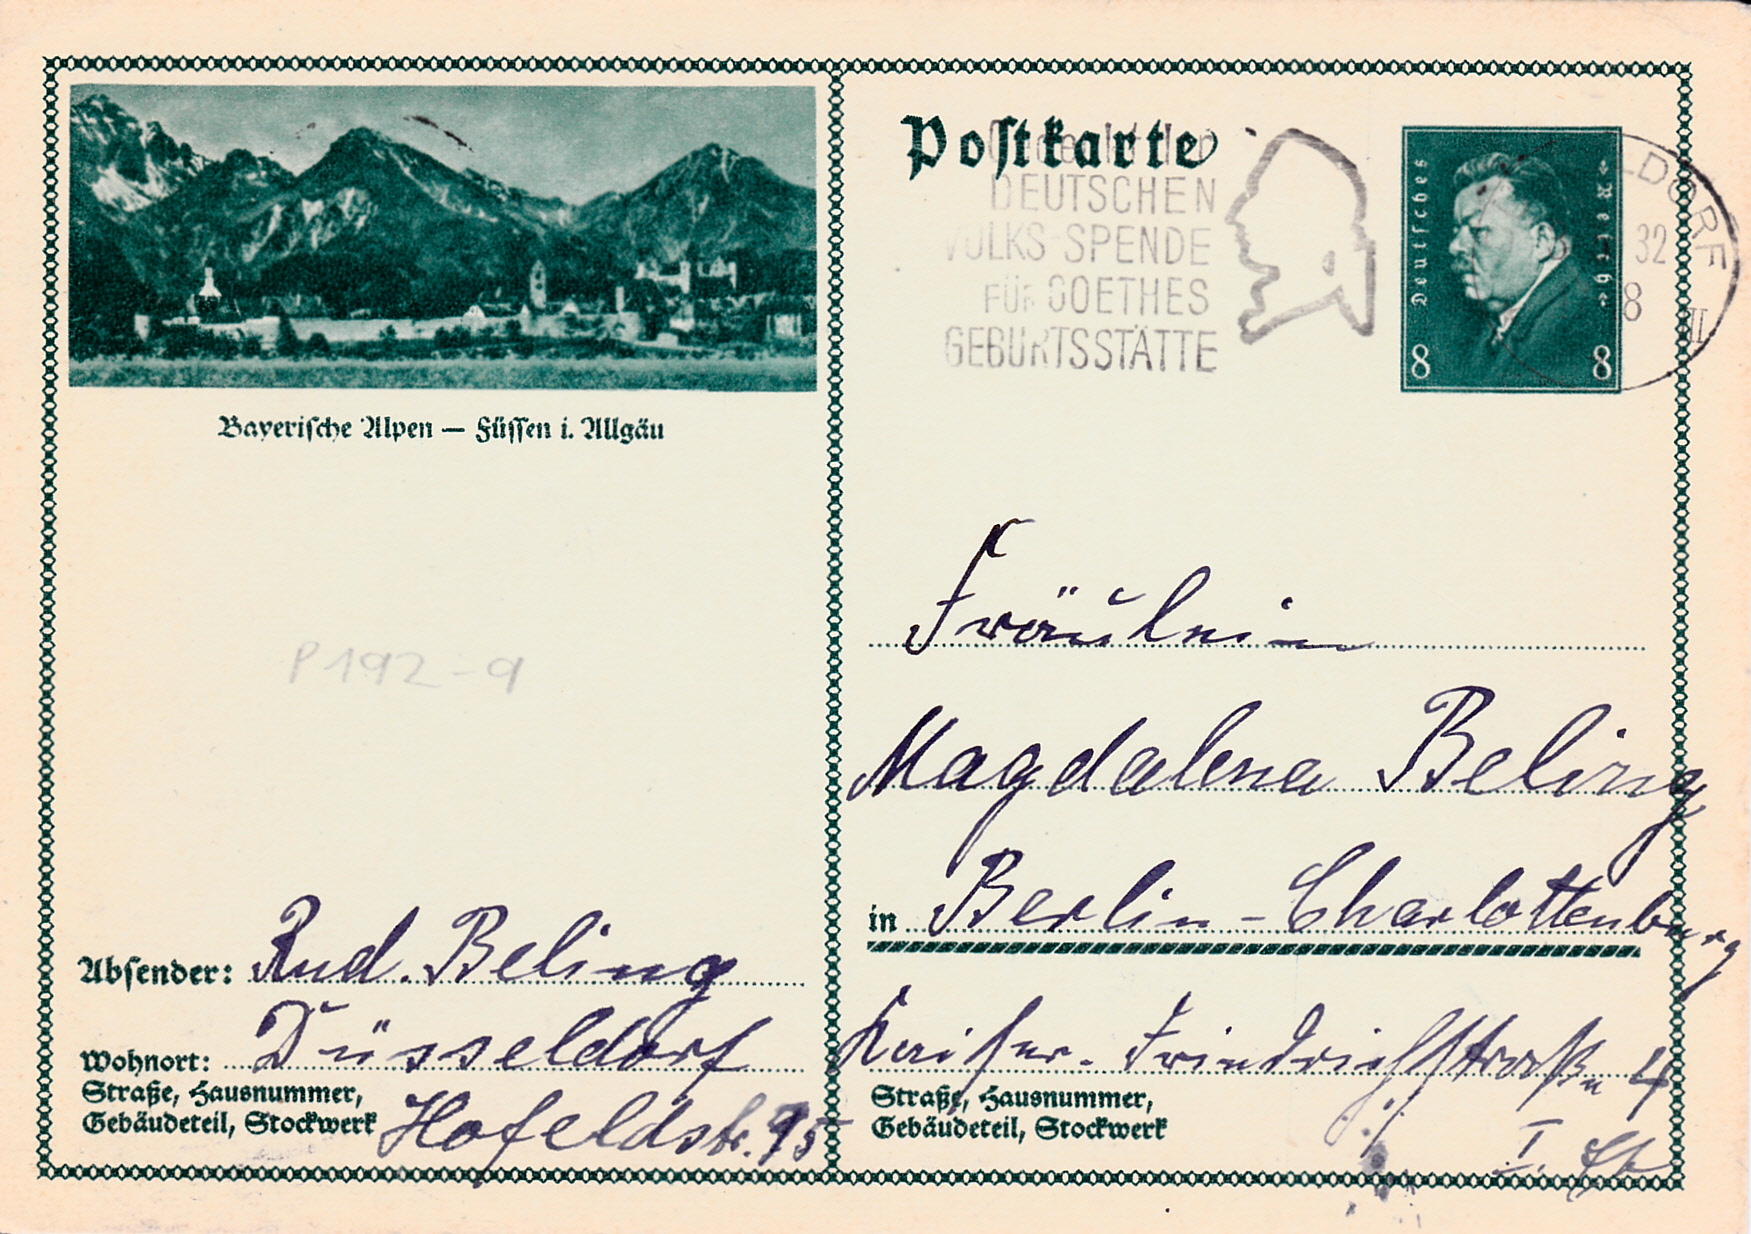 Bayerische Alpen — Füssen i. Allgäu
P192-9
Absender: Rud. Beling
Wohnort: Düsseldorf
Straße, Hausnummer,
Gebäudeteil, Stockwerk Hofeldstr. 75
Postkarte
DEUTSCHEN
VOLKS-SPENDE
FÜR GOETHES
GEBURTSSTÄTTE
Deutsches Reich
8 8
LDORF
32
8
II
Fräulein
Magdalena Beling
in Berlin-Charlottenburg
Kaiser-Friedrichstraße 4
Straße, Hausnummer,
Gebäudeteil, Stockwerk
I.